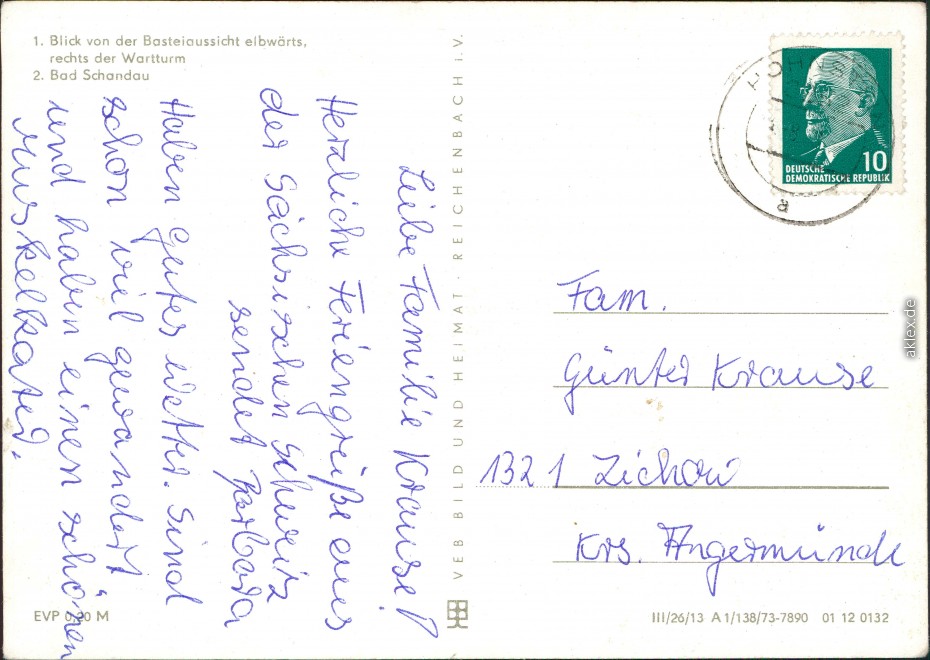 1. Blick von der Basteiaussicht elbwärts,
rechts der Wartturm
2. Bad Schandau
Liebe Familie Krause!
Herzliche Feriengrüße aus
der Sächsischen Schweiz
sendet Barbara
Haben gutes Wetter. Sind
schon viel gewandert
und haben einen schönen
Muskelkater.
EVP 0,20 M
VEB BILD UND HEIMAT · REICHENBACH i. V.
HOHNS
R
10
DEUTSCHE
DEMOKRATISCHE REPUBLIK
Fam.
Günter Krause
1321 Zichow
Krs. Angermünde
III/26/13 A 1/138/73-7890 01 12 0132
aklex.de